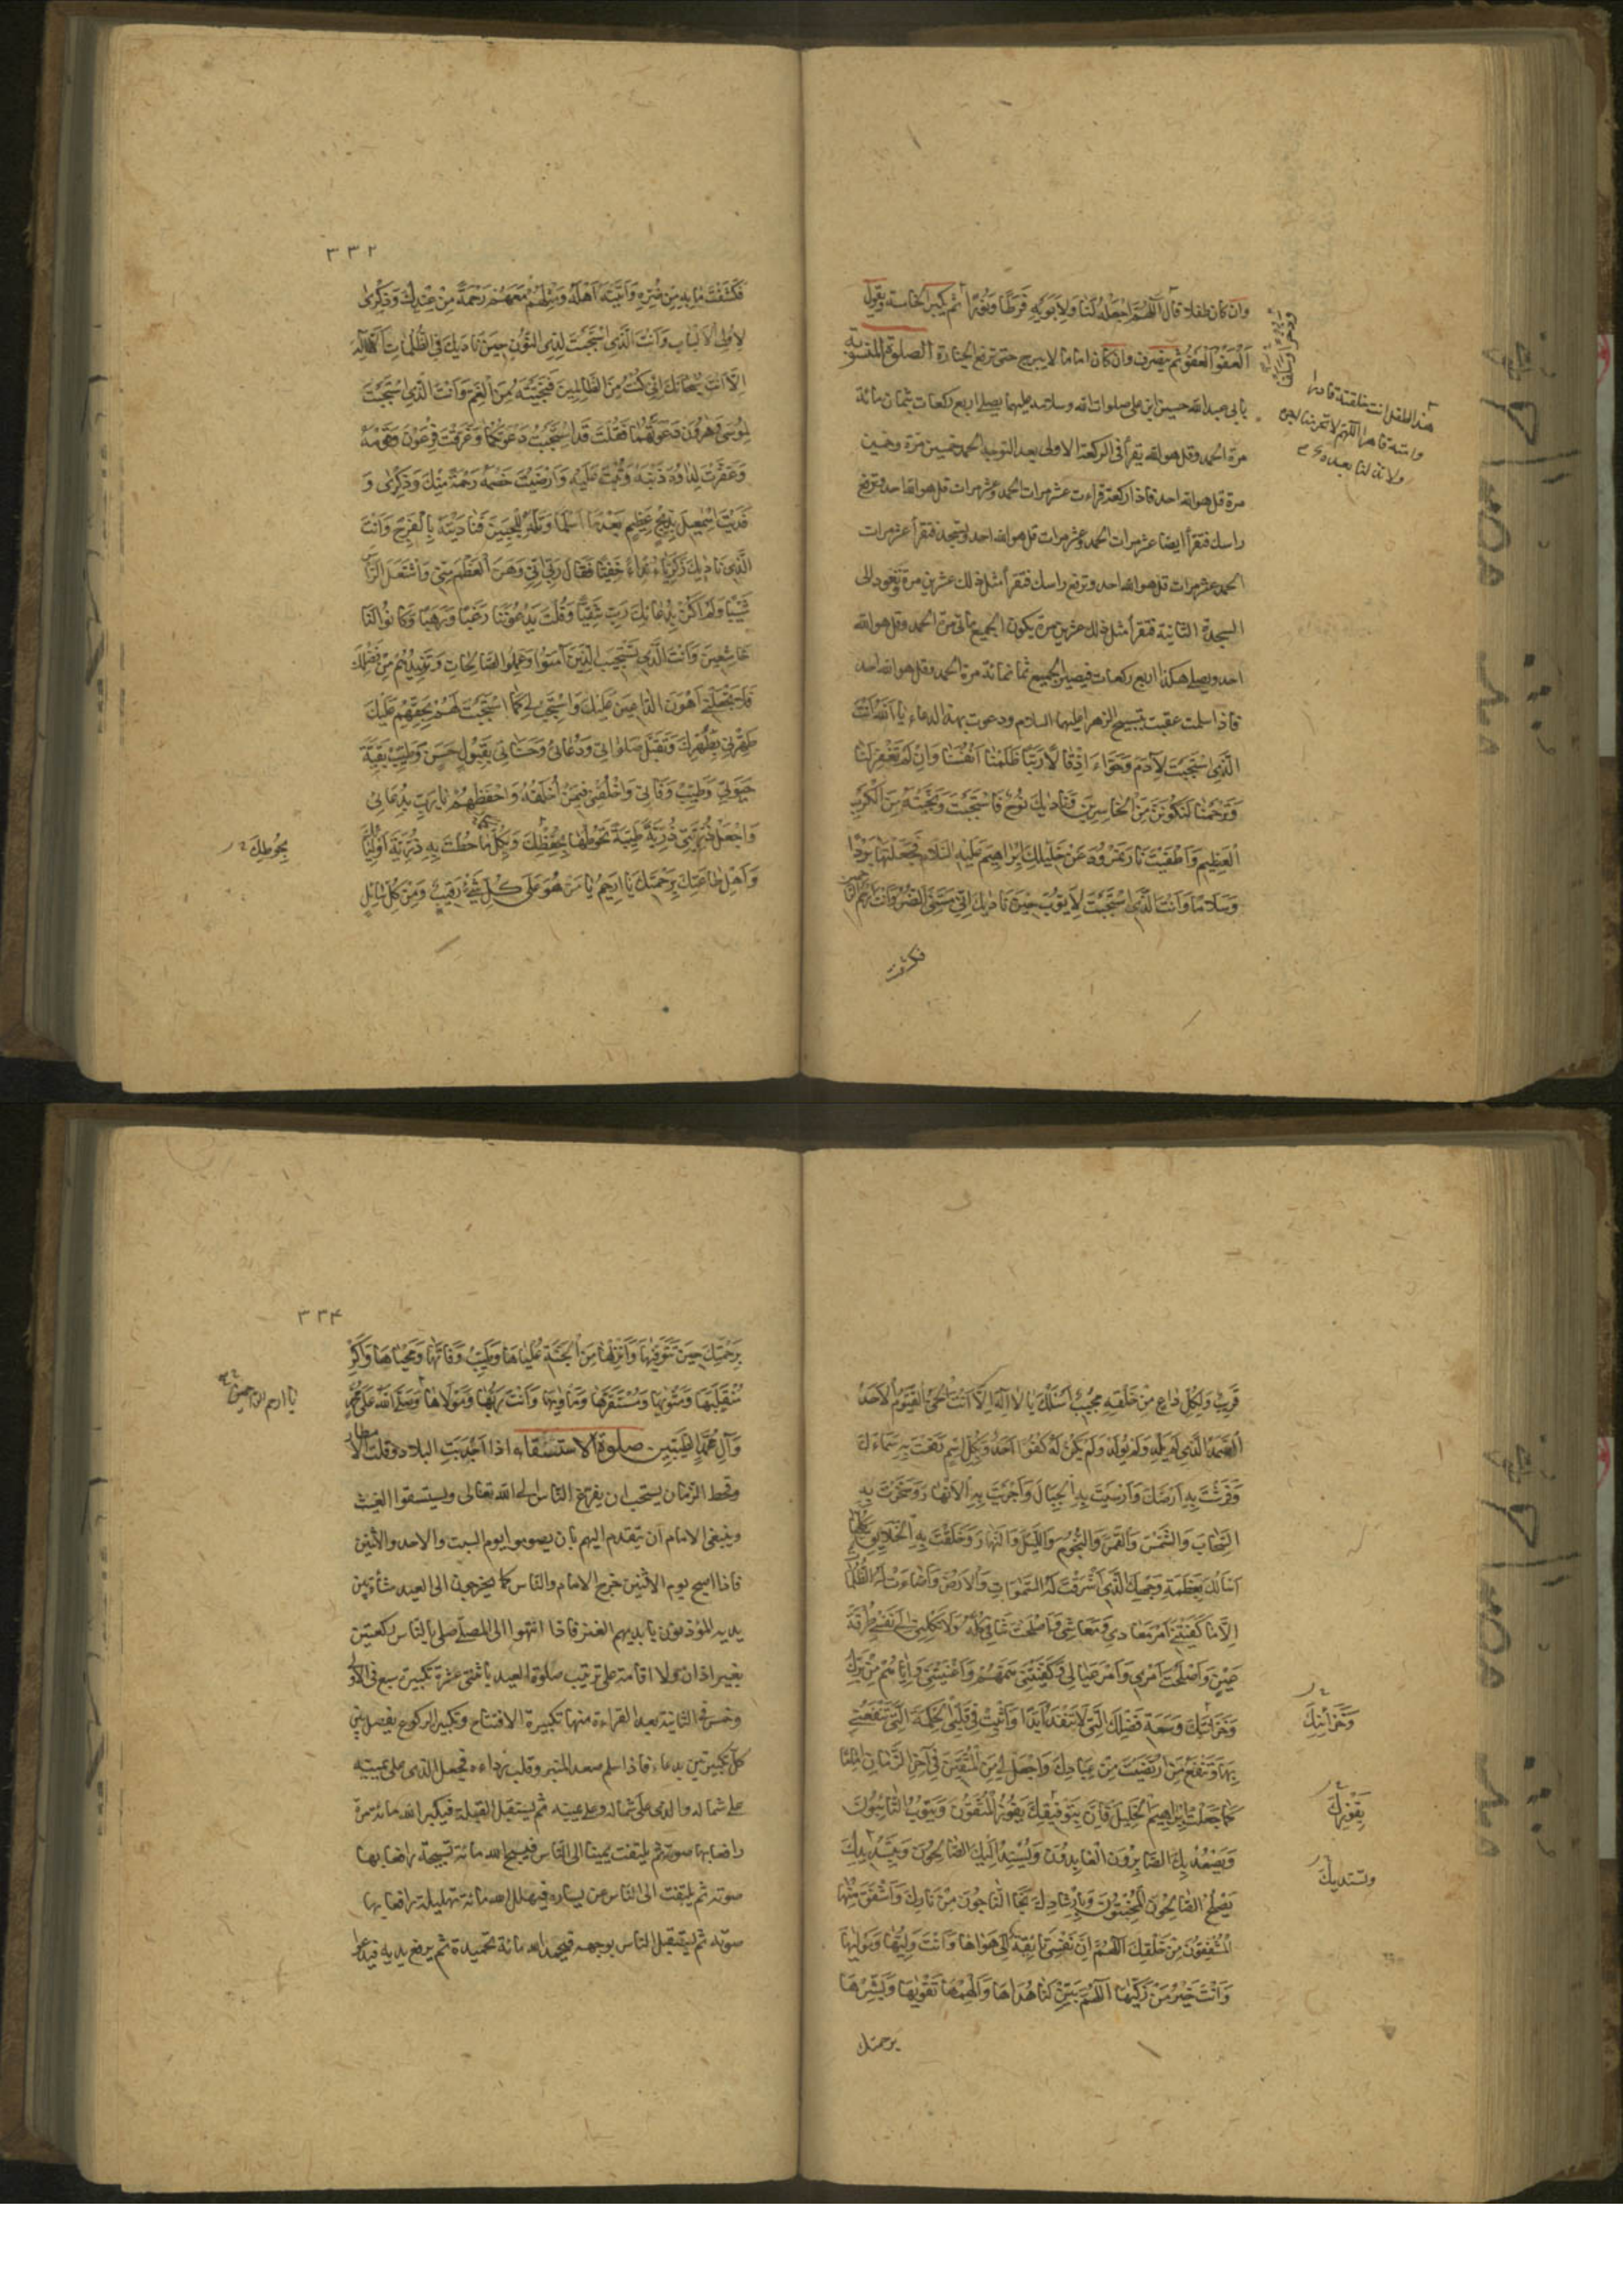 وان كان طفلا قال اَللّهُمَّ اجْعَلْهُ لَنا وَلِاَبَوَيْهِ فَرَطًا وَنُورًا ثم يكبر الخامسة يقول
اَلْعَفْوَ اَلْعَفْوَ ثم ينصرف وان كان اماما لا يبرح حتى ترفع الجنازة الصلوة المنسوبة
بابى عبد الله حسين ابن على صلوات الله وسلامه عليهما يصلى اربع ركعات بثمان مائة
مرة الحمد وقل هو الله يقرأ فى الركعة الاولى بعد التوجه الحمد خمسين مرة وخمسين
مرة قل هو الله احد فاذا ركعت قراءت عشر مرات الحمد وعشر مرات قل هو الله احد وترفع
راسك فتقرأ ايضا عشر مرات الحمد وعشر مرات قل هو الله احد وتسجد فتقرأ عشر مرات
الحمد عشر مرات قل هو الله احد وترفع راسك فتقرأ مثل ذلك عشرين مرة وتعود الى
السجدة الثانية فتقرأ مثل ذلك عشرين مرة يكون الجميع مأتى مرة الحمد وقل هو الله
احد ويصلى هكذا اربع ركعات فيصير الجميع ثمانمائة مرة الحمد وقل هو الله احد
فاذا سلمت عقبت بتسبيح الزهرا عليها السلام ودعوت بهذا الدعاء يا اَللهُ اَنْتَ
الَّذِى اسْتَجَبْتَ لِآدَمَ وَحَوَّاءَ اِذْ قَالَا رَبَّنَا ظَلَمْنَا اَنْفُسَنَا وَاِنْ لَمْ تَغْفِرْ لَنَا
وَتَرْحَمْنَا لَنَكُونَنَّ مِنَ الْخَاسِرِينَ وَنَادَيكَ نُوحٌ فَاسْتَجَبْتَ وَنَجَّيْتَهُ مِنَ الْكَرْبِ
الْعَظِيمِ وَاَطْفَيْتَ نَارَ نَمْرُودَ عَنْ خَلِيلِكَ اِبْرَاهِيمَ عَلَيْهِ السَّلَامُ فَجَعَلْتَهَا بَرْدًا
وَسَلَامًا وَاَنْتَ الَّذِى اسْتَجَبْتَ لِاَيُّوبَ حِينَ نَادَيكَ اَنِّى مَسَّنِىَ الضُّرُّ وَاَنْتَ اَرْحَمُ الراحمين
فكشفت
هذا الطفل انت خلقته قادرا
وامته قاهرا اللهم لا تحرمنا اجره
ولا تفتنا بعده
٣٣٢
فَكَشَفْتَ مَا بِهِ مِنْ ضُرٍّ وَاَتَيْتَهُ اَهْلَهُ وَمِثْلَهُمْ مَعَهُمْ رَحْمَةً مِنْ عِنْدِكَ وَذِكْرَى
لِاُولِى الْاَلْبَابِ وَاَنْتَ الَّذِى اسْتَجَبْتَ لِذِى النُّونِ حِينَ نَادَيكَ فِى الظُّلُمَاتِ اَنْ لَا اِلَهَ
اِلَّا اَنْتَ سُبْحَانَكَ اِنِّى كُنْتُ مِنَ الظَّالِمِينَ فَنَجَّيْتَهُ مِنَ الْغَمِّ وَاَنْتَ الَّذِى اسْتَجَبْتَ
لِمُوسَى وَهَرُونَ دَعْوَتَهُمَا فَقُلْتَ قَدْ اُسْتُجِيبَتْ دَعْوَتُكُمَا وَغَرَّقْتَ فِرْعَوْنَ وَقَوْمَهُ
وَغَفَرْتَ لِدَاوُدَ ذَنْبَهُ وَتُبْتَ عَلَيْهِ وَاَرْضَيْتَ خَصْمَهُ رَحْمَةً مِنْكَ وَذِكْرَى وَ
فَدَيْتَ اِسْمعِيلَ بِذِبْحٍ عَظِيمٍ بَعْدَ مَا اَسْلَمَا وَتَلَّهُ لِلْجَبِينِ فَنَادَيْتَهُ بِالْفَرَجِ وَاَنْتَ
الَّذِى نَادَيكَ زَكَرِيَّا نِدَاءً خَفِيًّا فَقَالَ رَبِّ اِنِّى وَهَنَ الْعَظْمُ مِنِّى وَاشْتَعَلَ الرَّأْسُ
شَيْبًا وَلَمْ اَكُنْ بِدُعَائِكَ رَبِّ شَقِيًّا وَقُلْتَ يَدْعُونَنَا رَغَبًا وَرَهَبًا وَكَانُوا لَنَا
خَاشِعِينَ وَاَنْتَ الَّذِى تَسْتَجِيبُ الَّذِينَ آمَنُوا وَعَمِلُوا الصَّالِحَاتِ وَتَزِيدُهُمْ مِنْ فَضْلِكَ
فَلَا تَجْعَلْنِى اَهْوَنَ الدَّاعِينَ عَلَيْكَ وَاسْتَجِبْ لِى كَمَا اسْتَجَبْتَ لَهُمْ بِحَقِّهِمْ عَلَيْكَ
طَهِّرْنِى بِطُهْرِكَ وَتَقَبَّلْ صَلوَاتِى وَدُعَائِى وَحَسَنَاتِى بِقَبُولٍ حَسَنٍ وَطَيِّبْ بَقِيَّةَ
حَيَوتِى وَطَيِّبْ وَفَاتِى وَاخْلُفْنِى فِيمَنْ اَخْلُفُ وَاحْفَظْهُمْ يَا رَبِّ بِدُعَائِى
وَاجْعَلْ ذُرِّيَّتِى ذُرِّيَّةً طَيِّبَةً تَحُوطُهَا بِحِفْظِكَ وَبِكُلِّ مَا حُطْتَ بِهِ ذُرِّيَّةَ اَوْلِيَائِكَ
وَاَهْلِ طَاعَتِكَ بِرَحْمَتِكَ يَا رَحِيمُ يَا مَنْ هُوَ عَلَى كُلِّ شَىْءٍ رَقِيبٌ وَمِنْ كُلِّ سَائِلٍ
قَرِيبٌ وَلِكُلِّ دَاعٍ مِنْ خَلْقِهِ مُجِيبٌ اَسْئَلُكَ يَا لَا اِلهَ اِلَّا اَنْتَ الْحَىُّ الْقَيُّومُ الْاَحَدُ
الصَّمَدُ الَّذِى لَمْ يَلِدْ وَلَمْ يُولَدْ وَلَمْ يَكُنْ لَهُ كُفُوًا اَحَدٌ وَبِكُلِّ اسْمٍ رَفَعْتَ بِهِ سَمَاءَكَ
وَفَرَشْتَ بِهِ اَرْضَكَ وَاَرْسَيْتَ بِهِ الْجِبَالَ وَاَجْرَيْتَ بِهِ الْاَنْهَارَ وَسَخَّرْتَ بِهِ
السَّحَابَ وَالشَّمْسَ وَالْقَمَرَ وَالنُّجُومَ وَاللَّيْلَ وَالنَّهَارَ وَخَلَقْتَ بِهِ الْخَلَايِقَ كلها
اَسْاَلُكَ بِعَظَمَةِ وَجْهِكَ الَّذِى اَشْرَقَتْ لَهُ السَّموَاتُ وَالْاَرْضُ وَاَضَاءَتْ لَهُ الظُّلُمَاتُ
اِلَّا مَا كَفَيْتَنِى اَمْرَ مَعَادِى وَمَعَاشِى وَاَصْلَحْتَ شَانِى كُلَّهُ وَلَا تَكِلْنِى اِلَى نَفْسِى طَرْفَةَ
عَيْنٍ وَاَصْلَحْتَ اَمْرِى وَاَمْرَ عِيَالِى وَكَفَيْتَنِى هَمَّهُمْ وَاَغْنَيْتَنِى وَاِيَّاهُمْ مِنْ كنزك
وَخَزَائِنِكَ وَسَعَةِ فَضْلِكَ الَّتِى لَا تَنْفَدُ اَبَدًا وَاَثْبِتْ فِى قَلْبِى الْحِكْمَةَ الَّتِى تَنْفَعُنِى
بِهَا وَتَنْفَعُ مَنِ ارْتَضَيْتَ مِنْ عِبَادِكَ وَاجْعَلْ لِى مِنَ الْمُتَّقِينَ فِى آخِرِ الزَّمَانِ اِمَامًا
كَمَا جَعَلْتَ اِبْرَاهِيمَ الْخَلِيلَ فَاِنَّ بِتَوْفِيقِكَ يَفُوزُ الْمُتَّقُونَ وَيَتُوبُ التَّائِبُونَ
وَيَعْبُدُكَ الْعَابِدُونَ وَبِتَسْدِيدِكَ
يَصْلُحُ الصَّالِحُونَ الْمُخْبِتُونَ وَبِاِرْشَادِكَ نَجَا النَّاجُونَ مِنْ نَارِكَ وَاَشْفَقَ مِنْهَا
الْمُشْفِقُونَ مِنْ خَلْقِكَ اَللّهُمَّ وَاَنْتَ وَلِيُّهَا وَمَوْلَيهَا
وَاَنْتَ خَيْرُ مَنْ زَكَّيهَا اَللّهُمَّ بَيِّنْ لَنَا هُدَاهَا وَاَلْهِمْهَا تَقْوَيهَا وَبَشِّرْهَا
برحمتك
وَخَزَائِنِكَ
٣٣٤
بِرَحْمَتِكَ حِينَ تَتَوَفَّيهَا وَاَنْزِلْهَا مِنَ الْجَنَّةِ عُلْيَاهَا وَطَيِّبْ وَفَاتَهَا وَمَحْيَاهَا وَاَكْرِمْ
مُنْقَلَبَهَا وَمَثْوَيهَا وَمُسْتَقَرَّهَا وَمَاْوَيهَا وَاَنْتَ رَبُّهَا وَمَوْلَاهَا وَصَلَّى اللهُ عَلَى محمد
وَآلِ مُحَمَّدٍ الطَّيِّبِينَ صلوة الاستسقاء اذا اَجْدَبَتِ البلاد وقلت الامطار
وقحط الزمان يستحب ان يفزع الناس الى الله تعالى ويستسقوا الغيث
وينبغى الامام ان يتقدم اليهم بان يصوموا يوم السبت والاحد والاثنين
فاذا اصبح يوم الاثنين خرج الامام والناس كما يخرجون الى العيد مشاة بين
يديه المؤذنون بايديهم العنز فاذا انتهوا الى المصلى صلى بالناس ركعتين
بغير اذان ولا اقامة على ترتيب صلوة العيد باثنتى عشرة تكبيرة سبع فى الاولى
وخمس فى الثانية بعد القراءة منها تكبيرة الافتتاح وتكبير الركوع يفصل بين
كل تكبيرتين بدعاء فاذا سلم صعد المنبر وقلب رداءه فيجعل الذى على يمينه
على شماله والذى على شماله على يمينه ثم يستقبل القبلة فيكبر الله مائة مرة
رافعا بها صوته ثم يلتفت يمينا الى الناس فيسبح الله مائة تسبيحة رافعا بها
صوته ثم يلتفت الى الناس عن يساره فيهلل الله مائة تهليلة رافعا بها
صوته ثم يستقبل الناس بوجهه فيحمد الله مائة تحميدة ثم يرفع يديه فيدعوا
يا ارحم الراحمين